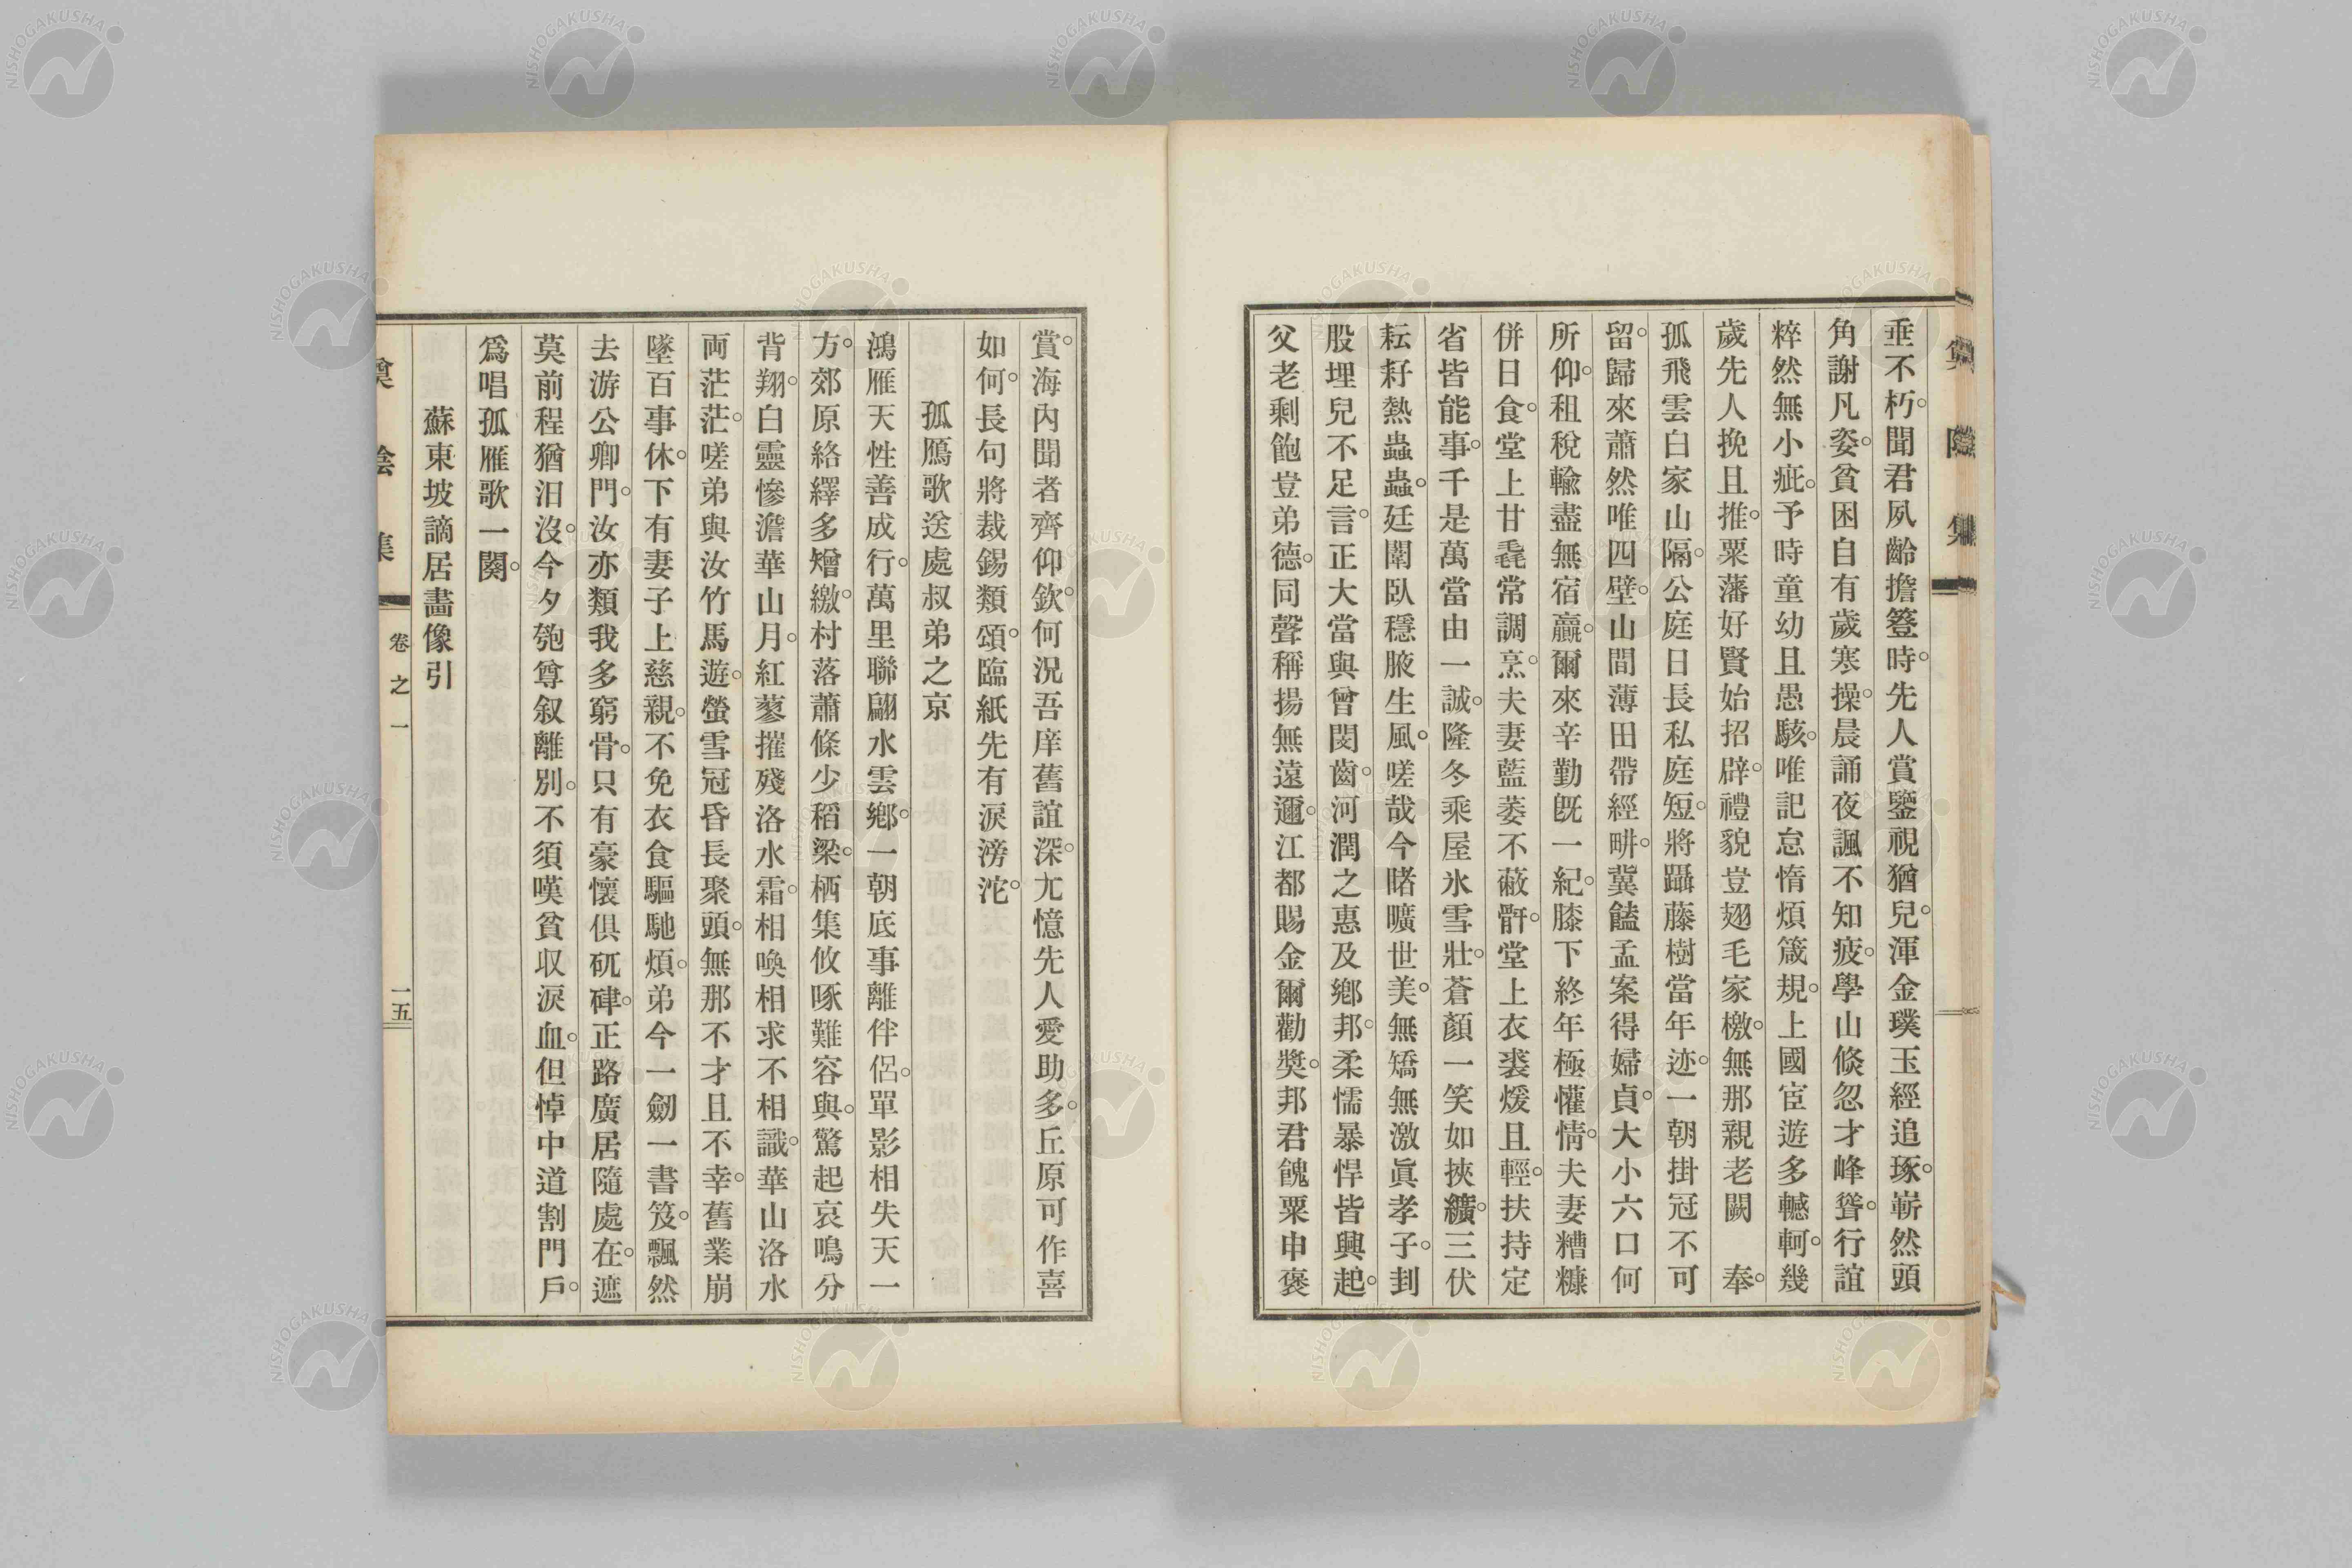 垂不朽。聞君夙齡擔簦時。先人賞鑒視猶兒。渾金璞玉經追琢。嶄然頭
角謝凡姿。貧困自有歲寒操。晨誦夜諷不知疲。學山倏忽才峰聳。行誼
粹然無小疵。予時童幼且愚騃。唯記怠惰煩箴規。上國宦遊多轗軻。幾
歲先人挽且推。粟藩好賢始招辟。禮貌豈翅毛家檄。無那親老闕 奉。
孤飛雲白家山隔。公庭日長私庭短。將躡藤樹當年迹。一朝掛冠不可
留。歸來蕭然唯四壁。山間薄田帶經畊。冀饁孟案得婦貞。大小六口何
所仰。租稅輸盡無宿贏。爾來辛勤既一紀。膝下終年極懽情。夫妻糟糠
併日食。堂上甘毳常調烹。夫妻藍蔞不蔽骭。堂上衣裘煖且輕。扶持定
省皆能事。千是萬當由一誠。隆冬乘屋氷雪壯。蒼顏一笑如挾纊。三伏
耘耔熱蟲蟲。廷闈臥穩腋生風。嗟哉今睹曠世美。無矯無激眞孝子。刲
股埋兒不足言。正大當與曾閔齒。河潤之惠及鄉邦。柔懦暴悍皆興起。
父老剩飽豈弟德。同聲稱揚無遠邇。江都賜金爾勸奬。邦君餽粟申褒
賞。海內聞者齊仰欽。何況吾庠舊誼深。尤憶先人愛助多。丘原可作喜
如何。長句將裁錫類頌。臨紙先有淚滂沱。
孤鴈歌送處叔弟之京
鴻雁天性善成行。萬里聯翩水雲鄉。一朝底事離伴侶。單影相失天一
方。郊原絡繹多矰繳。村落蕭條少稻梁。栖集攸啄難容與。驚起哀鳴分
背翔。白靈慘澹華山月。紅蓼摧殘洛水霜。相喚相求不相識。華山洛水
両茫茫。嗟弟與汝竹馬遊。螢雪冠昏長聚頭。無那不才且不幸。舊業崩
墜百事休。下有妻子上慈親。不免衣食驅馳煩。弟今一劒一書笈。飄然
去游公卿門。汝亦類我多窮骨。只有豪懷俱矹硉。正路廣居隨處在。遮
莫前程猶汨沒。今夕匏尊叙離別。不須嘆貧収淚血。但悼中道割門戶。
爲唱孤雁歌一闋。
蘇東坡謫居畵像引
卷之一 一五